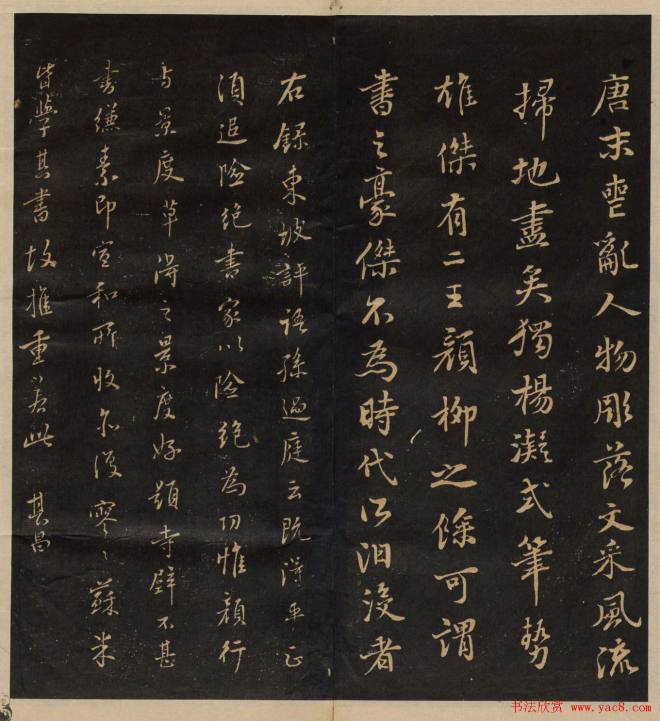 唐末喪亂人物彫落文采風流
掃地盡矣獨楊凝式筆勢
雄傑有二王顏柳之餘可謂
書之豪傑不為時代所汨沒者
右錄東坡評語孫過庭云既得平正
須追險絕書家以險絕為功惟顏行
与景度草得之景度好題寺壁不甚
書縑素即宣和所收亦復寥〻蘇米
皆學其書故推重若此 其昌
书法欣赏 www.yac8.com